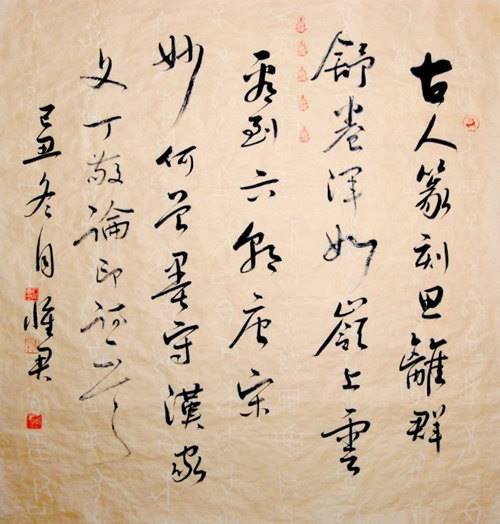 古人篆刻思離群
舒卷渾如嶺上雲
看到六朝唐宋
妙何曾墨守漢家
文丁敬論印詩
己丑冬月